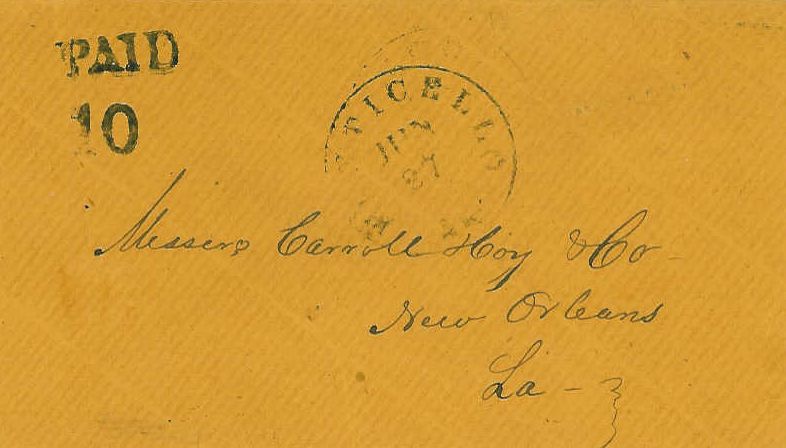 PAID
10
TICELLO
JUN
27
Messers Carroll Hoy & Co-
New Orleans
La-